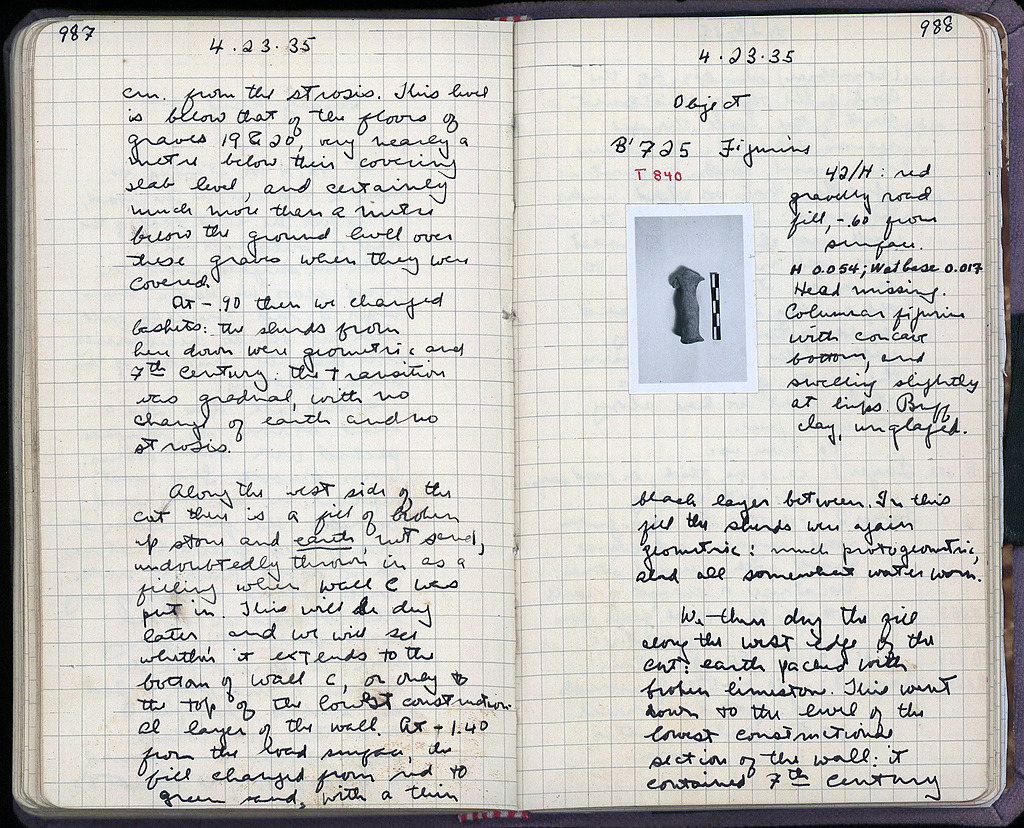 987
4.23.35
cm. from the strosis. This level
is below that of the floors of
graves 19 & 20, very nearly a
metre below their covering
slab level, and certainly
much more than a metre
below the ground level over
these graves when they were
covered.
At -.90 then we changed
baskets: the sherds from
here down were geometric and
7th century: the transition
was gradual, with no
change of earth and no
strosis.
Along the west side of the
cut there is a fill of broken
up stone and earth, not sand,
undoubtedly thrown in as a
filling when wall C was
put in. This will be dug
later and we will see
whether it extends to the
bottom of wall C, or only to
the top of the lowest construction-
al layer of the wall. At -1.40
from the road surface, the
fill changed from red to
green sand, with a thin
988
4.23.35
Object
B'725 Figurine
T 840
42/H: red
gravelly road
fill, -.60 from
surface.
H 0.054; W at base 0.017
Head missing.
Columnar figurine
with concave
bottom, and
swelling slightly
at hips. Buff
clay, unglazed.
black layer between. In this
fill the sherds were again
geometric: much protogeometric,
and all somewhat water worn.
We then dug the fill
along the west edge of the
cut: earth packed with
broken limestone. This went
down to the level of the
lowest constructional
section of the wall: it
contained 7th century